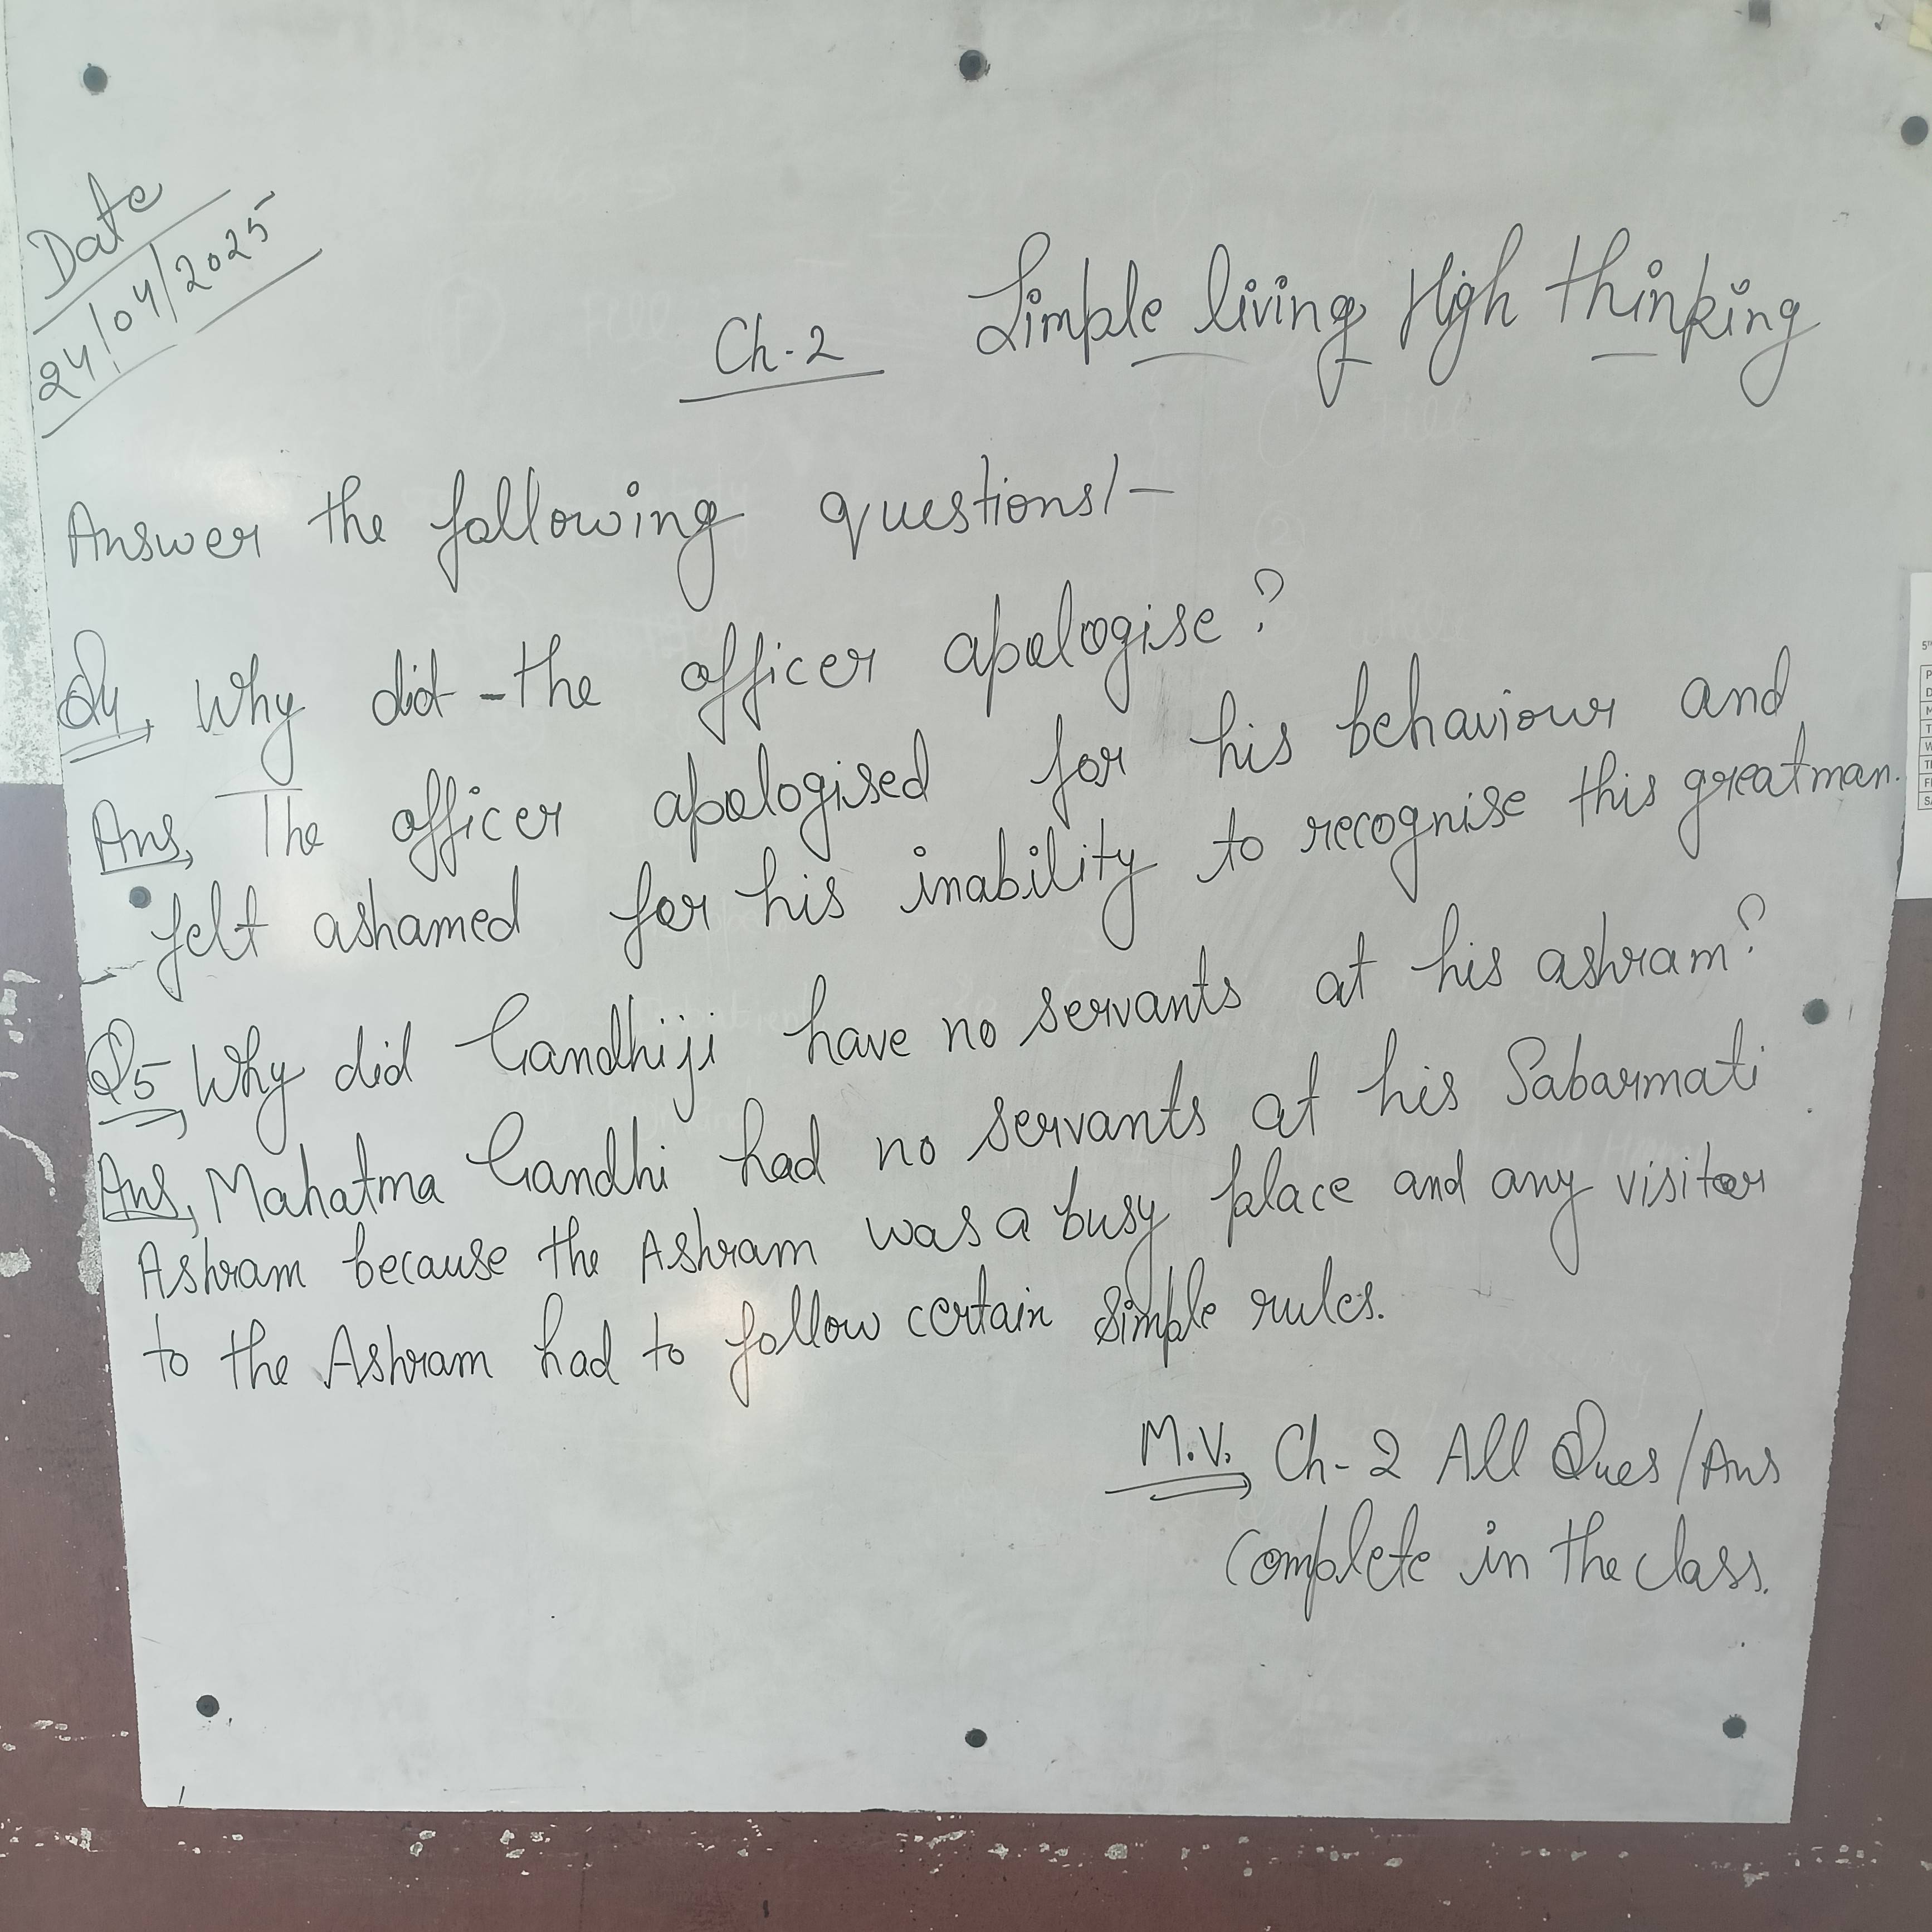 Date
24/04/2025
Ch-2 Simple living High thinking
Answer the following questions/-
Q4, Why did -the officer apologise?
Ans, The officer apologised for his behaviour and
felt ashamed for his inability to recognise this greatman.
Q5, Why did Gandhiji have no servants at his ashram?
Ans, Mahatma Gandhi had no servants at his Sabarmati
Ashram because the Ashram was a busy place and any visitor
to the Ashram had to follow certain simple rules.
M.V. Ch-2 All Ques/Ans
Complete in the class.